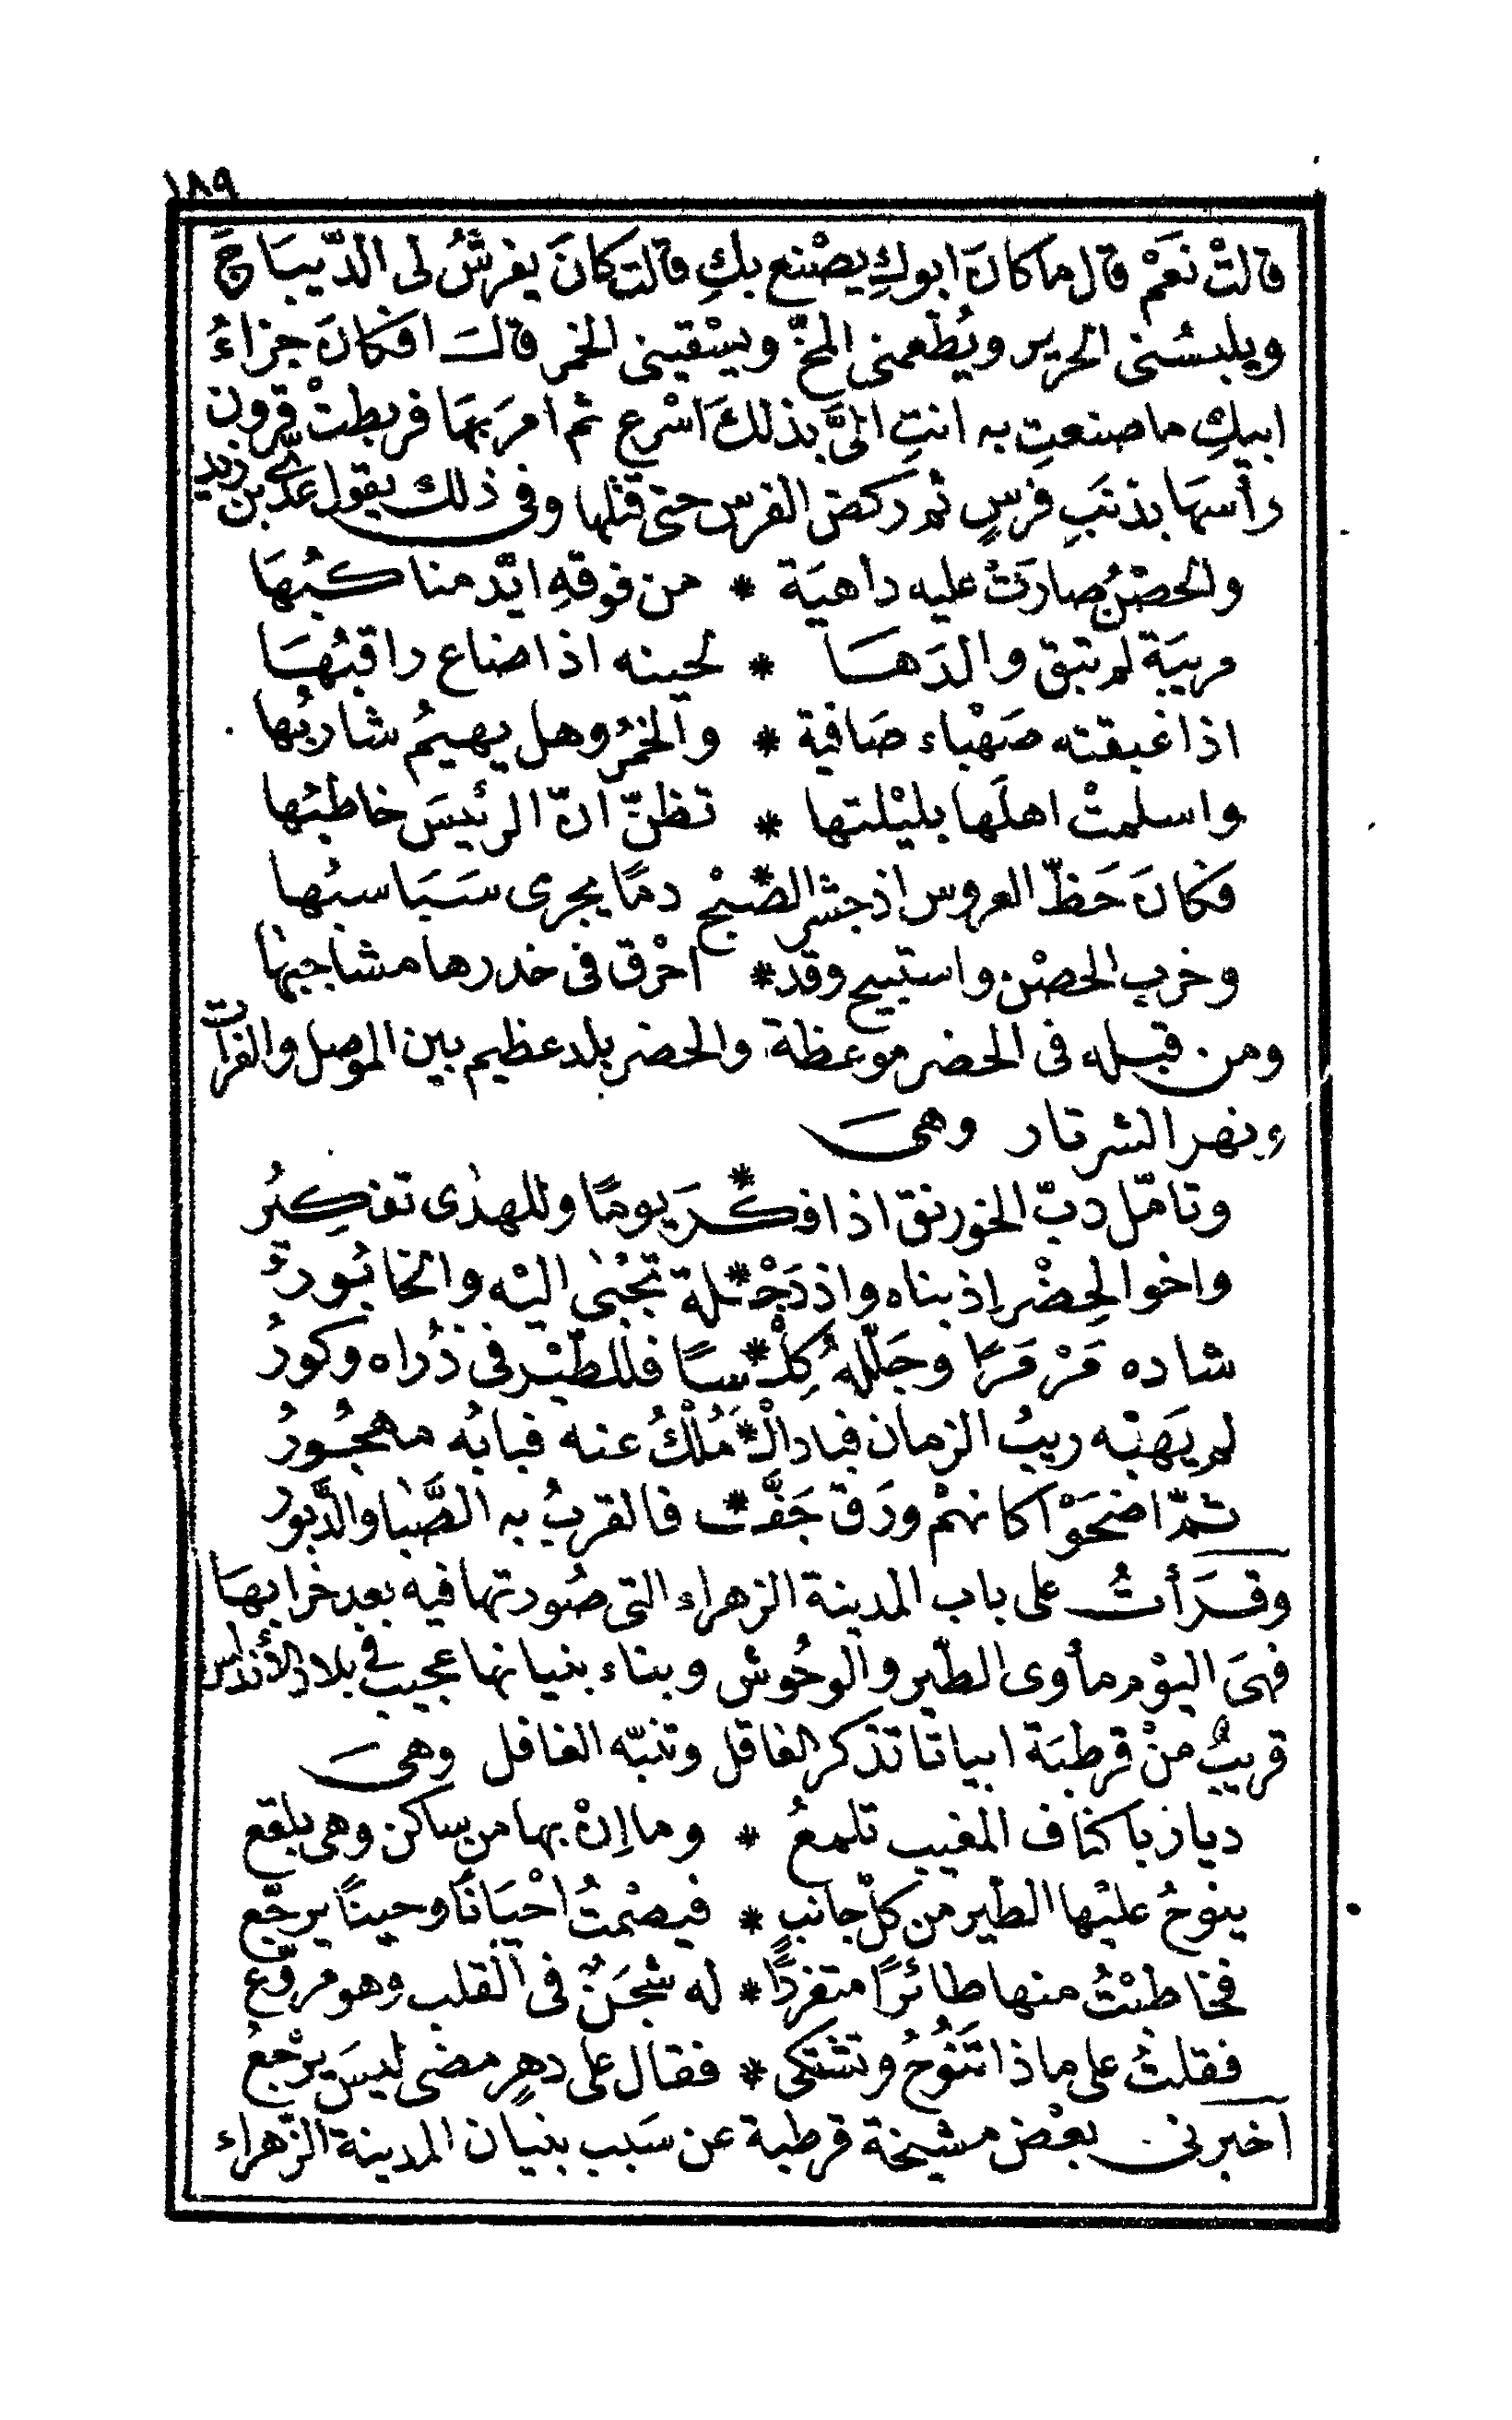 ١٨٩
قالتْ نعَمْ قال ما كانَ ابوكِ يصْنع بكِ قالت كانَ يفرشُ لى الدّيبَاجَ
ويلبسُنى الحرير ويُطْعمنى المخّ ويسْقينى الخمر قالَ افكانَ جزاءُ
ابيكِ ما صنعتِ به انتِ الىَّ بذلكَ اسْرع ثم امرَ بهَا فربطتْ قرون
رأسهَا بذنَبِ فرسٍ ثم ركض الفرس حتى قتلها وفى ذلك يقول عدىّ بن زيد
والحصْنُ صارَتْ عليه داهيَة * من فوقهِ ايّد مناكبُهَا
مربيَة لم تبق والدَهَا * لحينه اذا ضاع راقبُهَا
اذا غبقته صَهْباء صَافية * والخمرُ وهل يهيمُ شاربُها
واسلمتْ اهلَها بليْلتها * تظنّ انّ الرئيسَ خاطبُها
فكانَ حَظّ العروس اذ جشر الصّبْح * دمًا يجرى سَبَاسبُها
وخرب الحصْن واستبيح وقد * احْرق فى خدرها مشاجبُها
ومن قبله فى الحضر موعظة والحضر بلد عظيم بين الموصل والفرات
ونهر الشرثار وهىَ
وتامّل ربّ الخورنق اذا فكّرَ * يومًا وللهدٰى تفكِيرُ
واخوا لحِضْر اِذ بناه واذ دَجْـ * ـلة تجْبٰى اليْه والخابُورُ
شاده مَرْمَرًا وجَلّلهُ كِلْـ * ـسًا فللطّيْر فى ذُراه وكورُ
لم يَهَبْه ريبُ الزمان فباد الـ * ـمُلْكُ عنه فبابُه مهجُورُ
ثمّ اضحَوْا كانهمْ ورَق جَفَّـ * ـت فالقربُ به الصَّبا والدَّبور
وقرَأتُ على باب المدينة الزهراء التى صُورتها فيه بعد خرابهَا
فهىَ اليوْم مأوى الطّير والوحُوش وبناء بنيانها عجيب فى بلاد الأندلس
قريبٌ منْ قرطبَة ابياتا تذكر الغاقل وتنبّه الغافل وهىَ
ديار باكناف المغيب تلمعُ * وما اِنْ بها من ساكن وهى بلقع
ينوحُ عليْها الطّير من كلّ جانبٍ * فيصْمتُ احْيَانًا وحينًا يرجّع
فخاطبْتُ منها طائرًا متفردًا * له شجَنٌ فى القلب وهو مروّع
فقلتُ على ماذا تَنُوحُ وتشتكى * فقال على دهرٍ مضى ليسَ يرْجعُ
اخبرنى بعْض مشيخة قرطبة عن سَبب بنيان المدينة الزّهراء